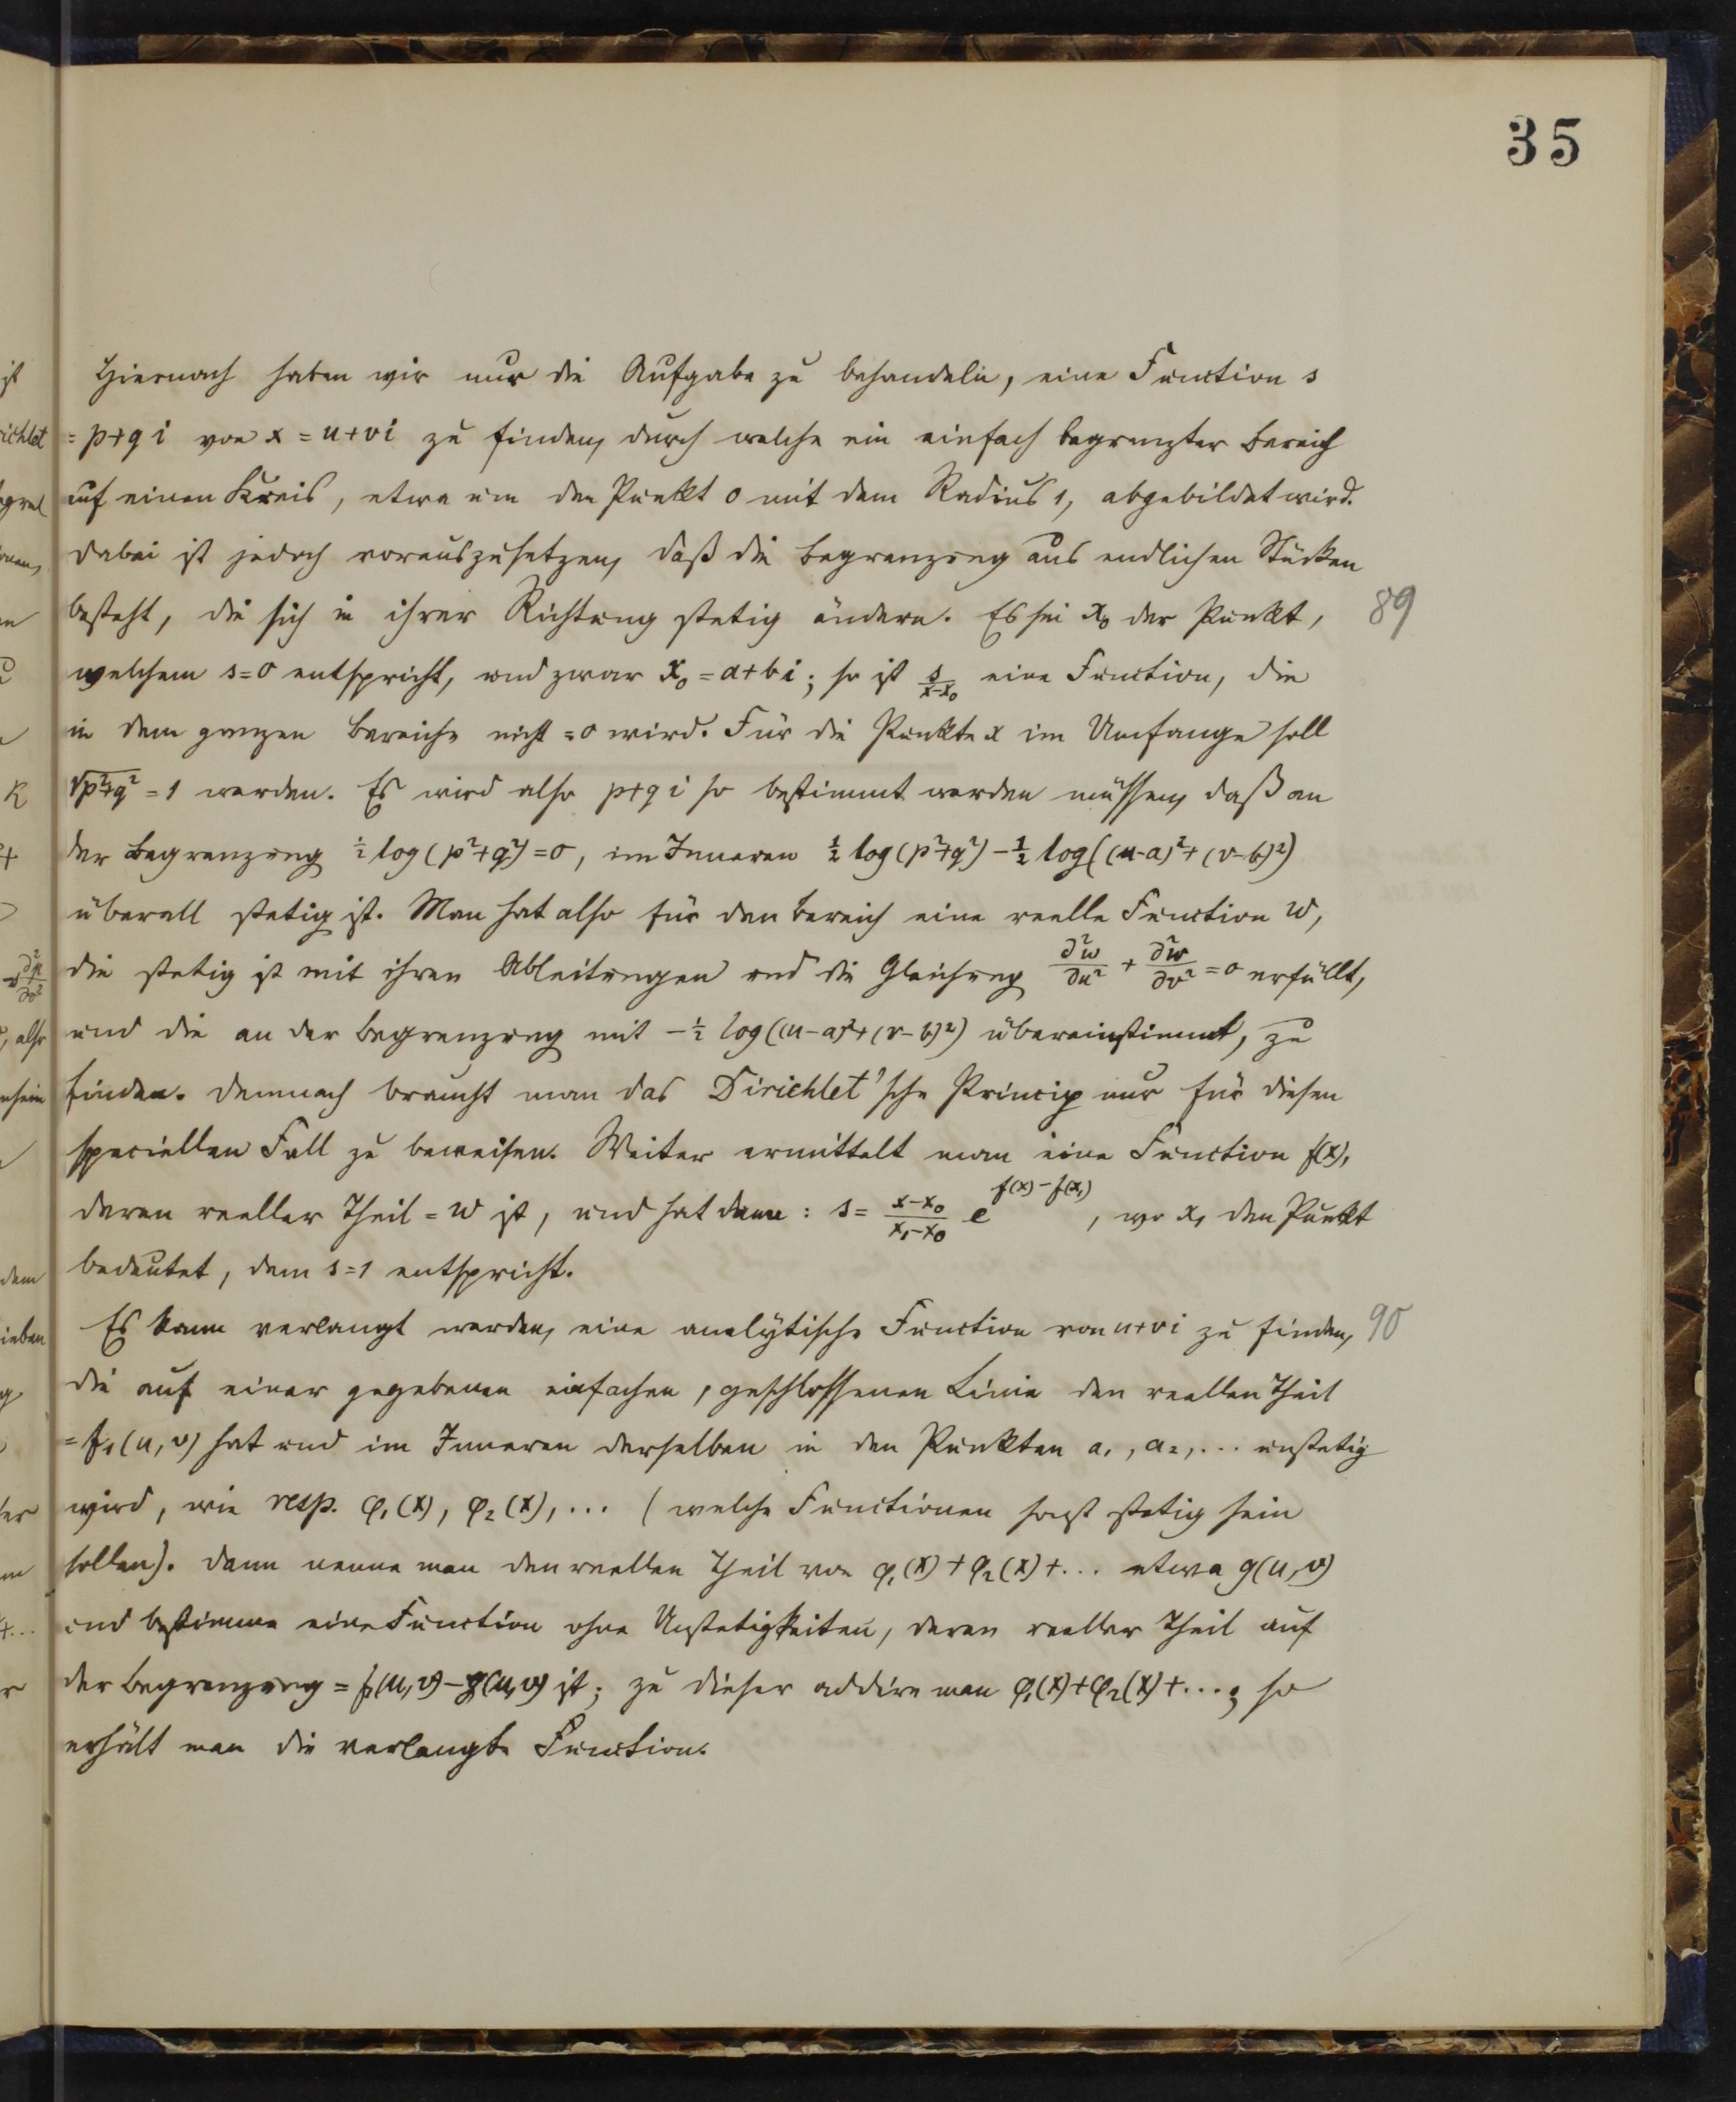 35
Hiernach haben wir nur die Aufgabe zu behandeln, eine Function s
= p+qi von x = u+vi zu finden, durch welche ein einfach begrenzter Bereich
auf einen Kreis, etwa um den Punkt 0 mit dem Radius 1, abgebildet wird.
Dabei ist jedoch vorauszusetzen, daß die Begrenzung aus endlichen Stücken
besteht, die sich in ihrer Richtung stetig ändern. Es sei x₀ der Punkt,
89
welchem s=0 entspricht, und zwar x₀ = a+bi; so ist s/(x-x₀) eine Function, die
in dem ganzen Bereiche nicht =0 wird. Für die Punkte x im Umfange soll
√(p²+q²) = 1 werden. Es wird also p+qi so bestimmt werden müssen, daß an
der Begrenzung ½ log(p²+q²)=0, im Inneren ½ log(p²+q²) - ½ log((u-a)²+(v-b)²)
überall stetig ist. Man hat also für den Bereich eine reelle Function w,
die stetig ist mit ihren Ableitungen und die Gleichung ∂²w/∂u² + ∂²w/∂v² = 0 erfüllt,
und die an der Begrenzung mit -½ log((u-a)²+(v-b)²) übereinstimmt, zu
finden. Demnach braucht man das Dirichlet'sche Princip nur für diesen
speciellen Fall zu beweisen. Weiter ermittelt man eine Function f(x),
deren reeller Theil = w ist, und hat dann: s = (x-x₀)/(x₁-x₀) e^(f(x)-f(x₁)), wo x₁ den Punkt
bedeutet, dem s=1 entspricht.
Es kann verlangt werden, eine analytische Function von u+vi zu finden,
90
die auf einer gegebenen einfachen, geschlossenen Linie den reellen Theil
= f₁(u,v) hat und im Inneren derselben in den Punkten a₁, a₂, ... unstetig
wird, wie resp. φ₁(x), φ₂(x), ... (welche Functionen sonst stetig sein
sollen). Dann nenne man den reellen Theil von φ₁(x)+φ₂(x)+... etwa g(u,v)
und bestimme eine Function ohne Unstetigkeiten, deren reeller Theil auf
der Begrenzung = f(u,v)-g(u,v) ist; zu dieser addire man φ₁(x)+φ₂(x)+...; so
erhält man die verlangte Function.